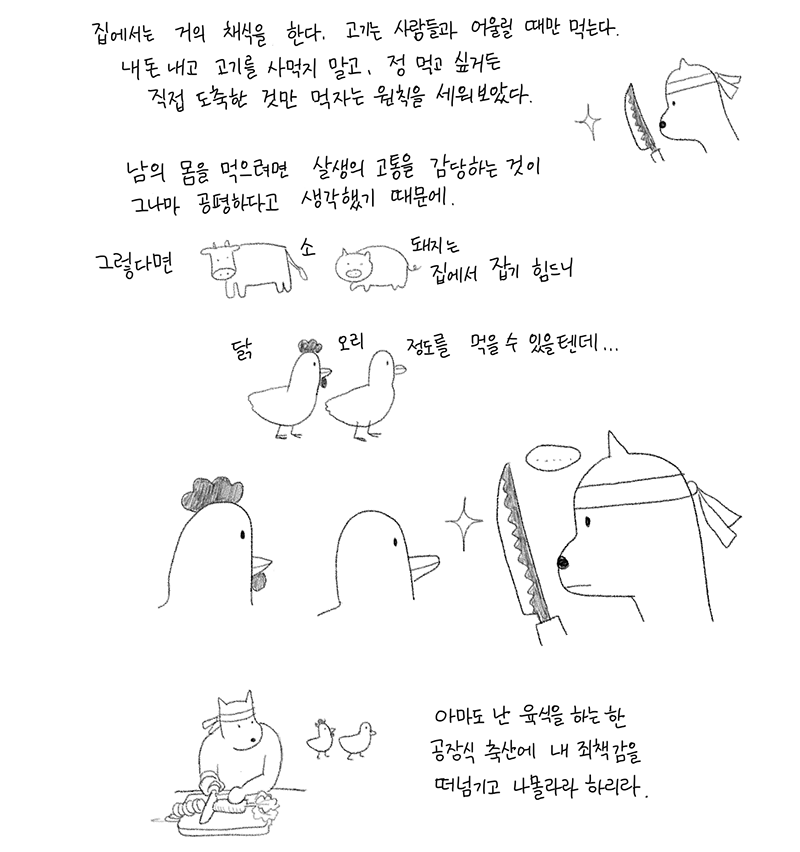 집에서는 거의 채식을 한다. 고기는 사람들과 어울릴 때만 먹는다.
내 돈 내고 고기를 사먹지 말고, 정 먹고 싶거든
직접 도축한 것만 먹자는 원칙을 세워보았다.
남의 몸을 먹으려면 살생의 고통을 감당하는 것이
그나마 공평하다고 생각했기 때문에.
그렇다면 소 돼지는
집에서 잡기 힘드니
닭 오리 정도를 먹을 수 있을텐데...
.....
아마도 난 육식을 하는 한
공장식 축산에 내 죄책감을
떠넘기고 나몰라라 하리라.